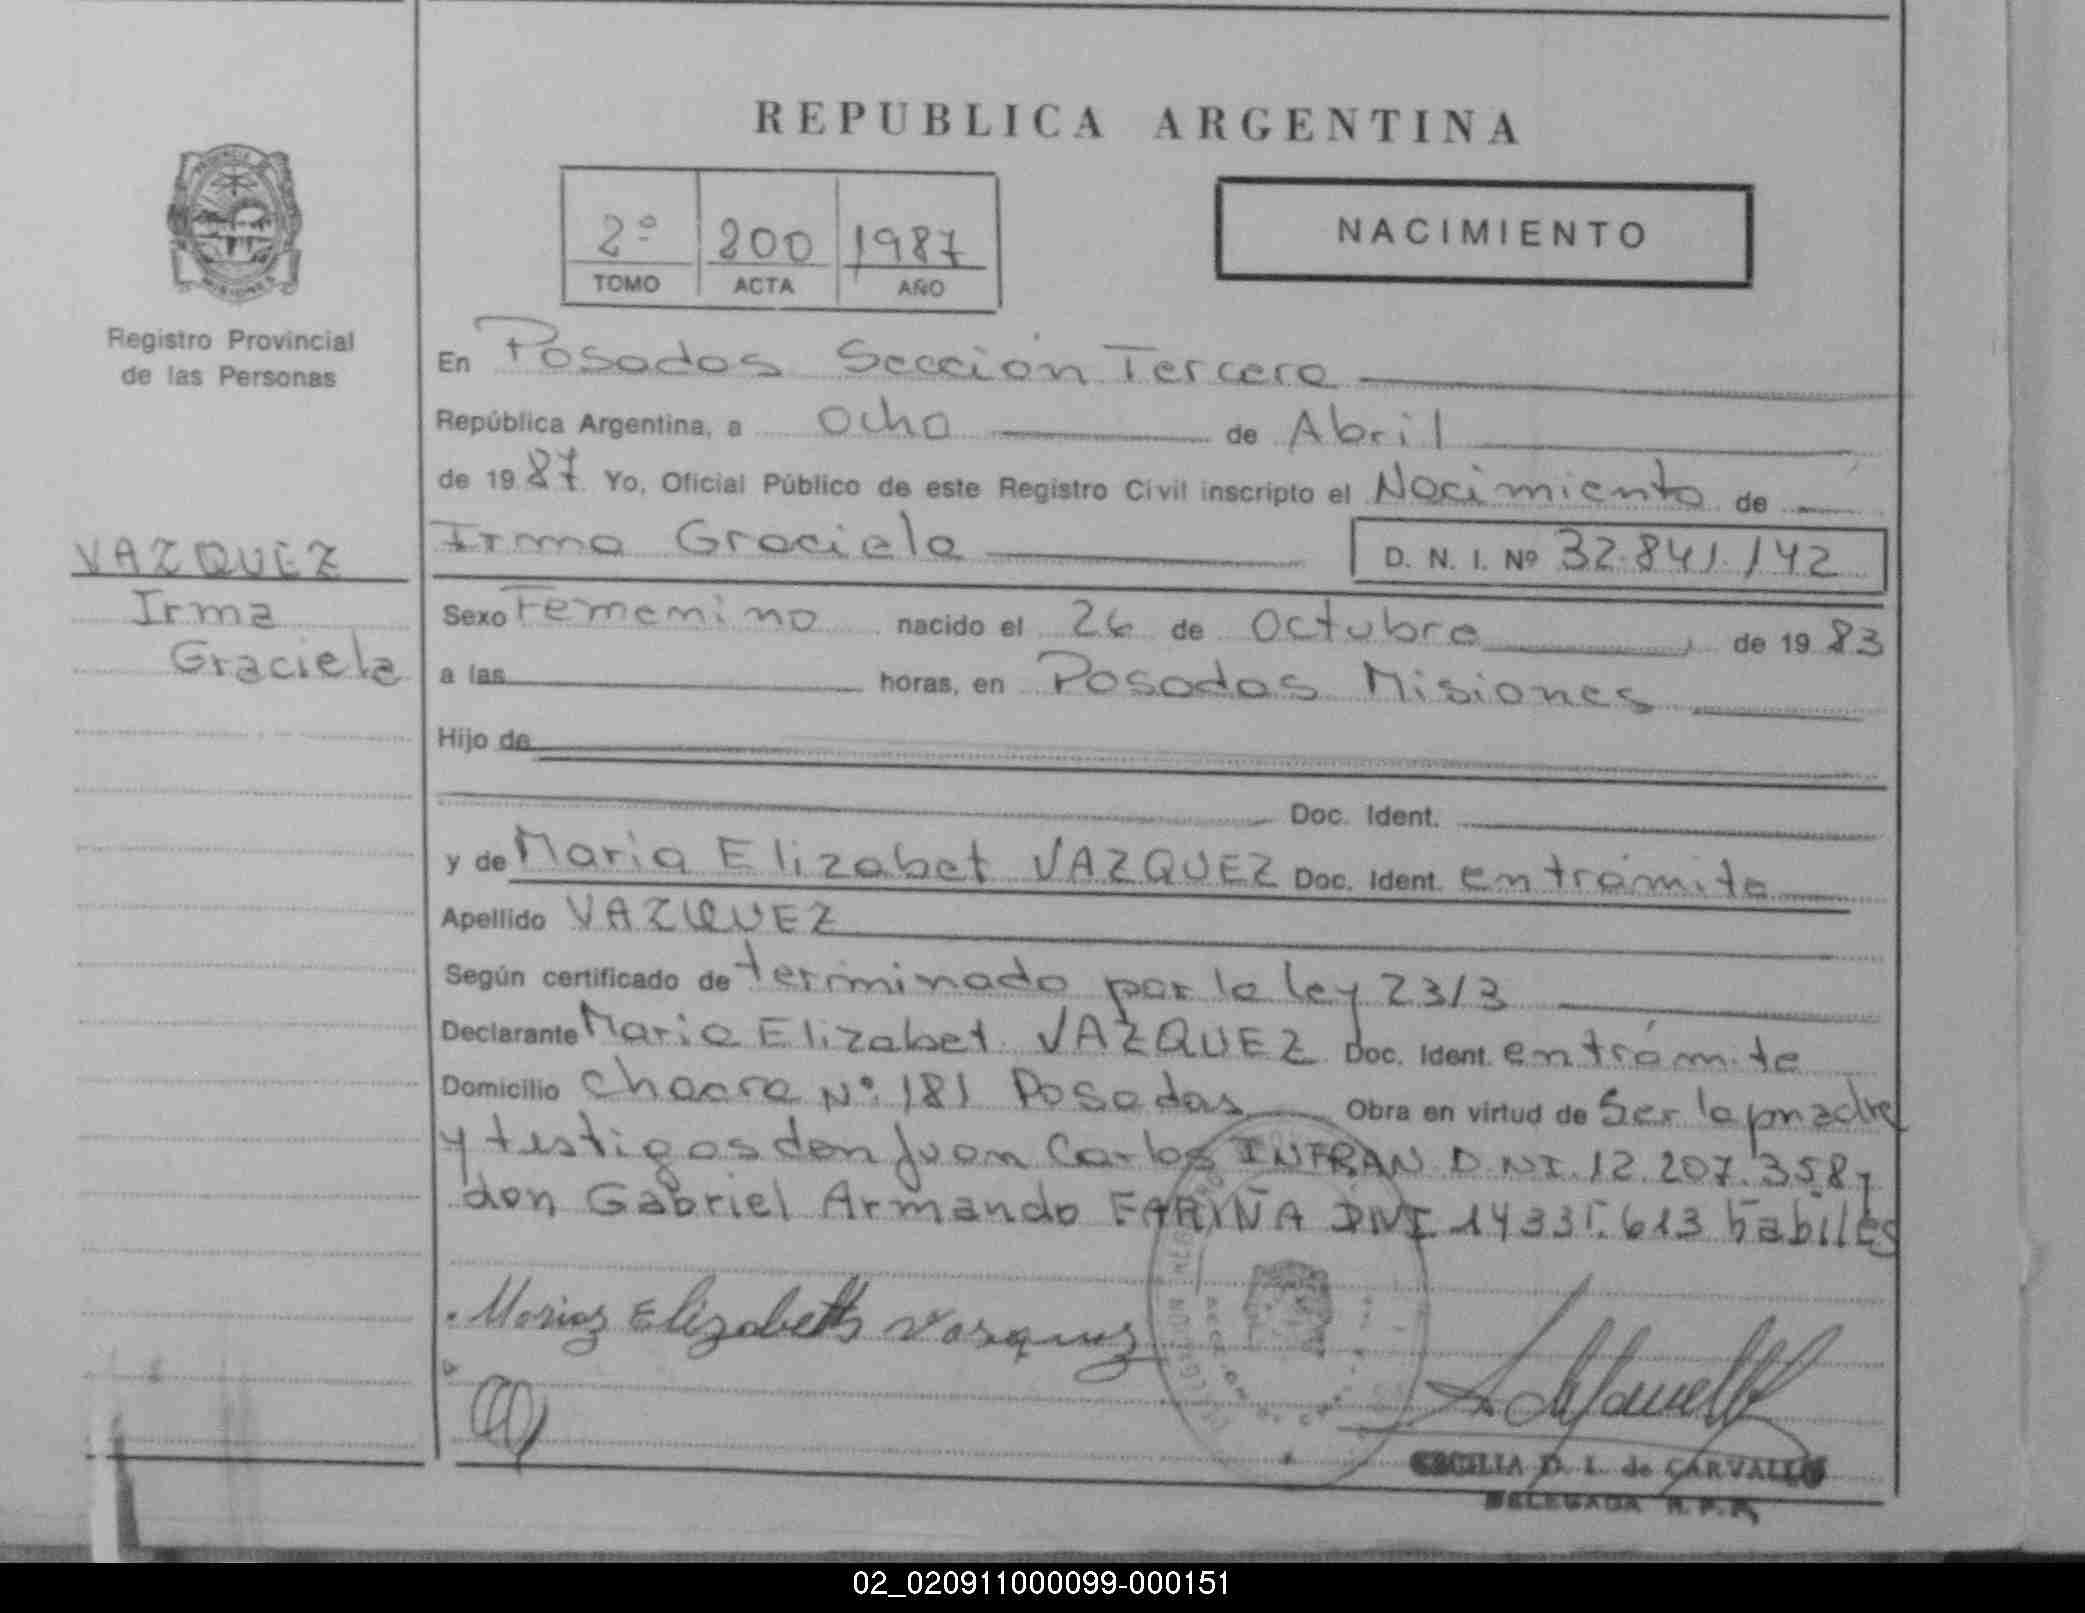 REPUBLICA ARGENTINA
2º 200 1987
TOMO ACTA AÑO
NACIMIENTO
Registro Provincial
de las Personas
VAZQUEZ
Irma
Graciela
En Posadas Sección Tercera
República Argentina, a Ocho de Abril
de 1987 Yo, Oficial Público de este Registro Civil inscripto el Nacimiento de
Irma Graciela D. N. I. Nº 32.841.142
Sexo Femenino nacido el 26 de Octubre de 1983
a las horas, en Posadas Misiones
Hijo de
Doc. Ident.
y de Maria Elizabet VAZQUEZ Doc. Ident. en trámite
Apellido VAZQUEZ
Según certificado de terminado por la ley 23/3
Declarante Maria Elizabet VAZQUEZ Doc. Ident. en trámite
Domicilio Chacra Nº 181 Posadas Obra en virtud de Ser la madre
y testigos don Juan Carlos INFRAN D.N.I. 12.207.358 y
don Gabriel Armando FARIÑA DNI 14335.613 habiles
Maria Elizabeth Vasquez
CECILIA D. L. de CARVALLO
DELEGADA R.P.P.
02_020911000099-000151